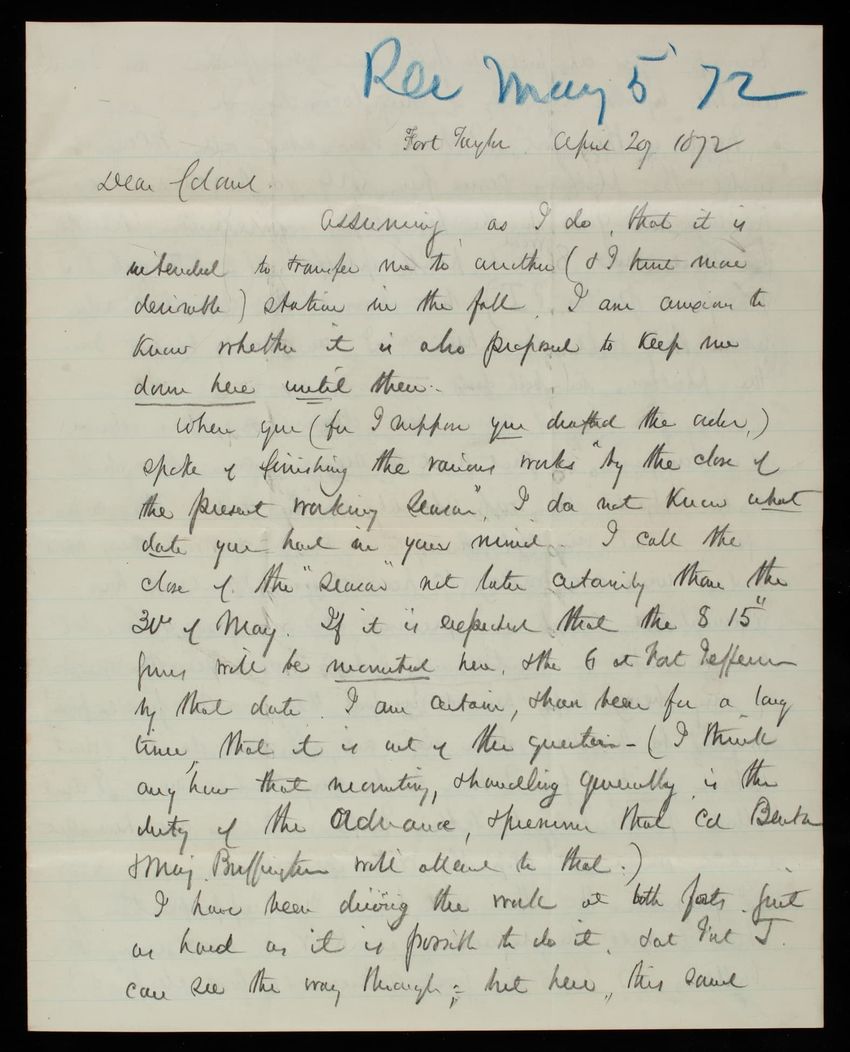 Rec May 5 '72
Fort Taylor. April 29 1872
Dear Colonel.
Assuming, as I do, that it is
intended to transfer me to another (& I trust more
desirable) station in the fall, I am anxious to
know whether it is also proposed to keep me
down here until then.
When you (for I suppose you drafted the order,)
spoke of finishing the various works "by the close of
the present working season", I do not know what
date you had in your mind. I call the
close of the "season" not later certainly than the
30th of May. If it is expected that the 8 15"
guns will be mounted here, & the 6 at Fort Jefferson
by that date, I am certain, & have been for a long
time, that it is out of the question - (I think
any how that mounting, & handling generally, is the
duty of the Ordnance, & presume that Col
& Maj. Buffington will attend to that.)
I have been driving the work at both forts just
as hard as it is possible to do it, & at Fort J.
can see the way through; - but here, this sand